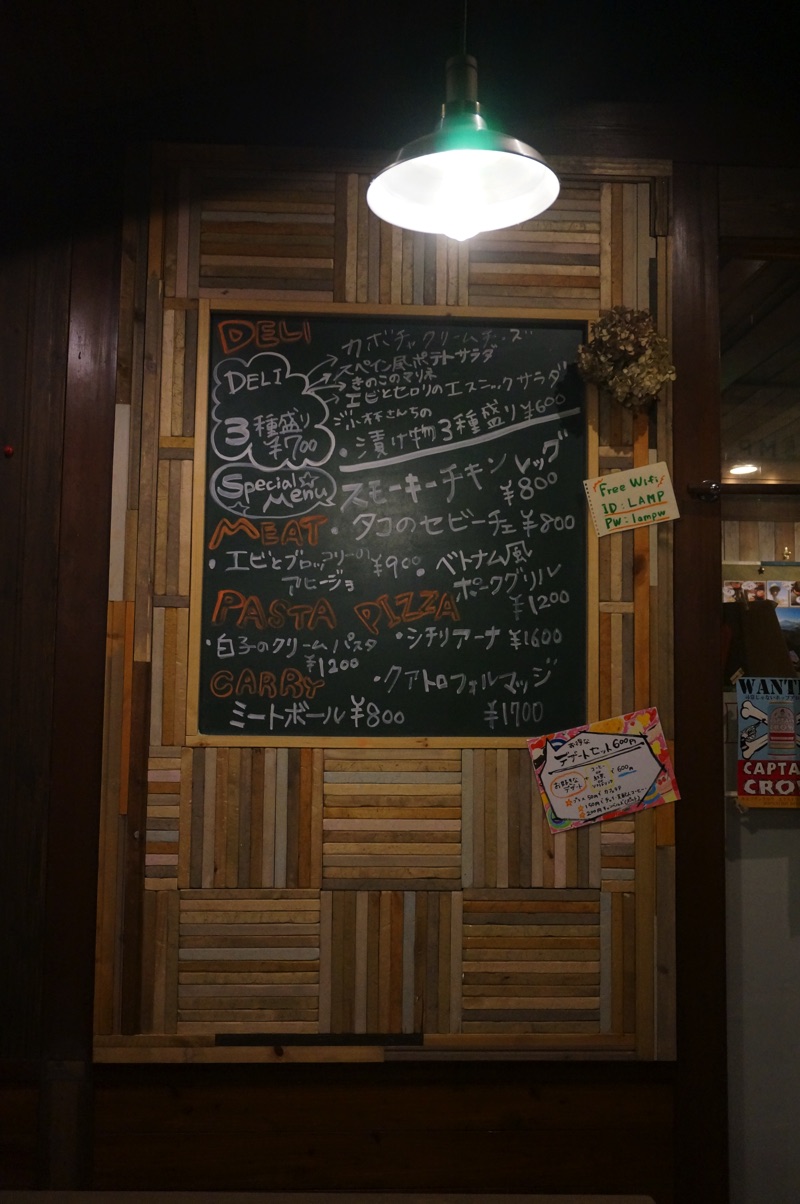 DELI
カボチャクリームチーズ
スペイン風ポテトサラダ
きのこのマリネ
エビとセロリのエスニックサラダ
DELI
3種盛り
¥700
小林さんちの
・漬け物3種盛り¥600
Special Menu
スモーキーチキンレッグ
¥800
・タコのセビーチェ¥800
MEAT
・エビとブロッコリーの
アヒージョ
¥900
・ベトナム風
ポークグリル
¥1200
PASTA PIZZA
・白子のクリームパスタ
¥1200
・シチリアーナ ¥1600
・クアトロフォルマッジ
¥1700
CARRY
ミートボール¥800
Free Wifi
ID:LAMP
PW:lampw
お得な
デザートセット600円
お好きな
デザート
コーヒー
紅茶
¥600
WANT
CAPTA
CROW